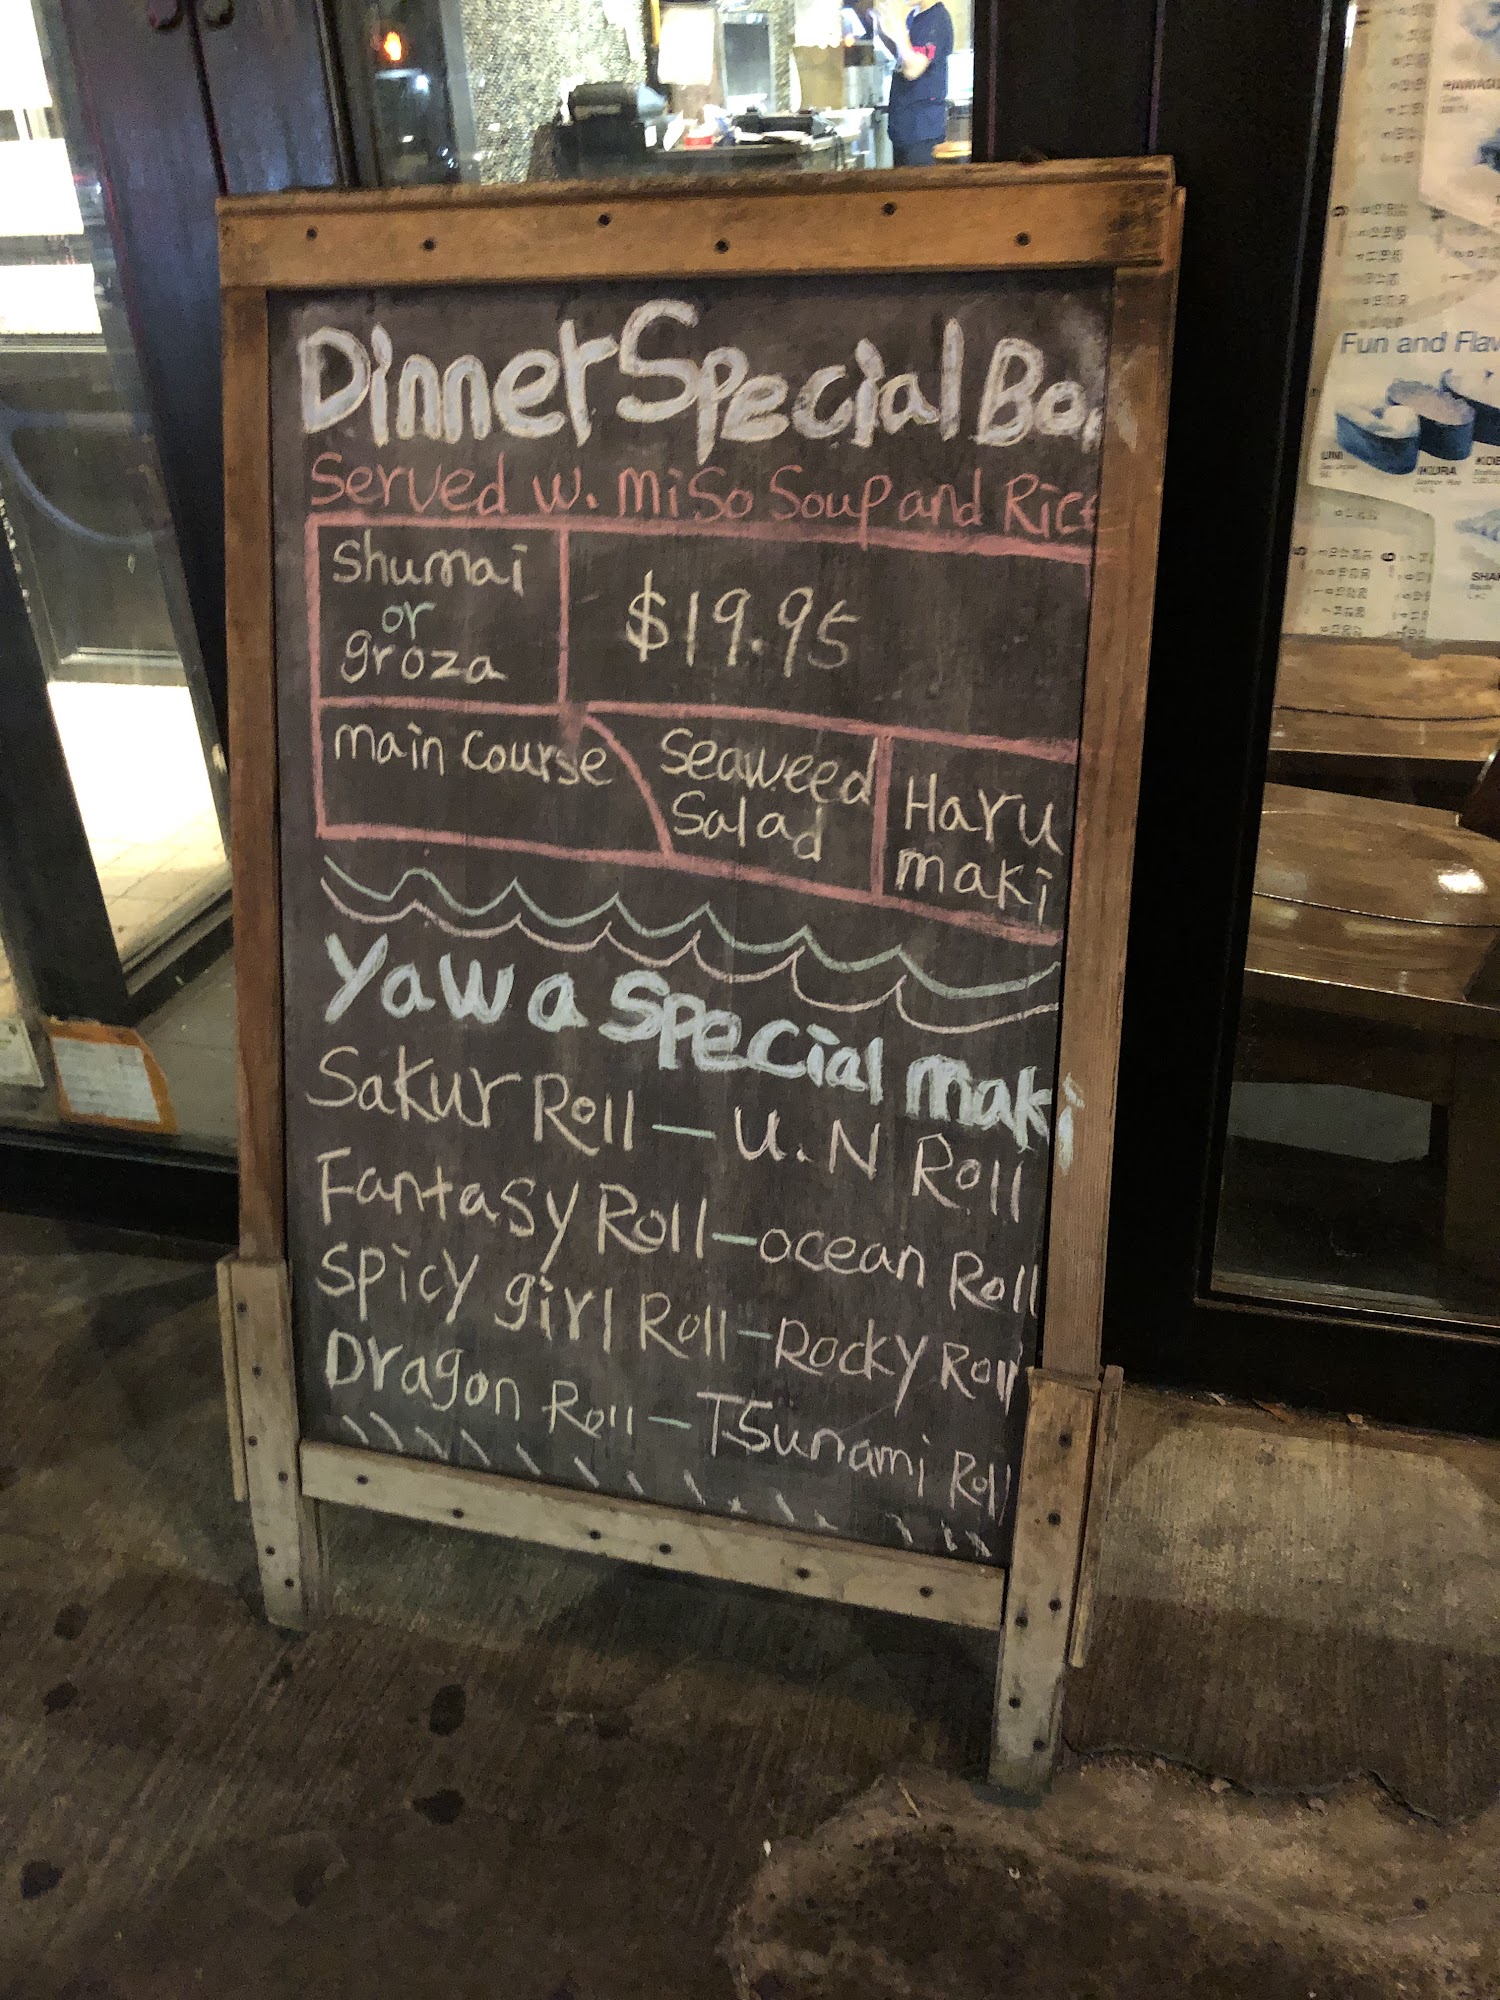 Dinner Special Box
Served w. Miso Soup and Rice
Shumai
or
groza
$19.95
main course
Seaweed
Salad
Haru
maki
Yawa Special maki
Sakur Roll — U.N Roll
Fantasy Roll — ocean Roll
Spicy girl Roll — Rocky Roll
Dragon Roll — Tsunami Roll
Fun and Flav
UNI
IKURA
KOB
SHAK